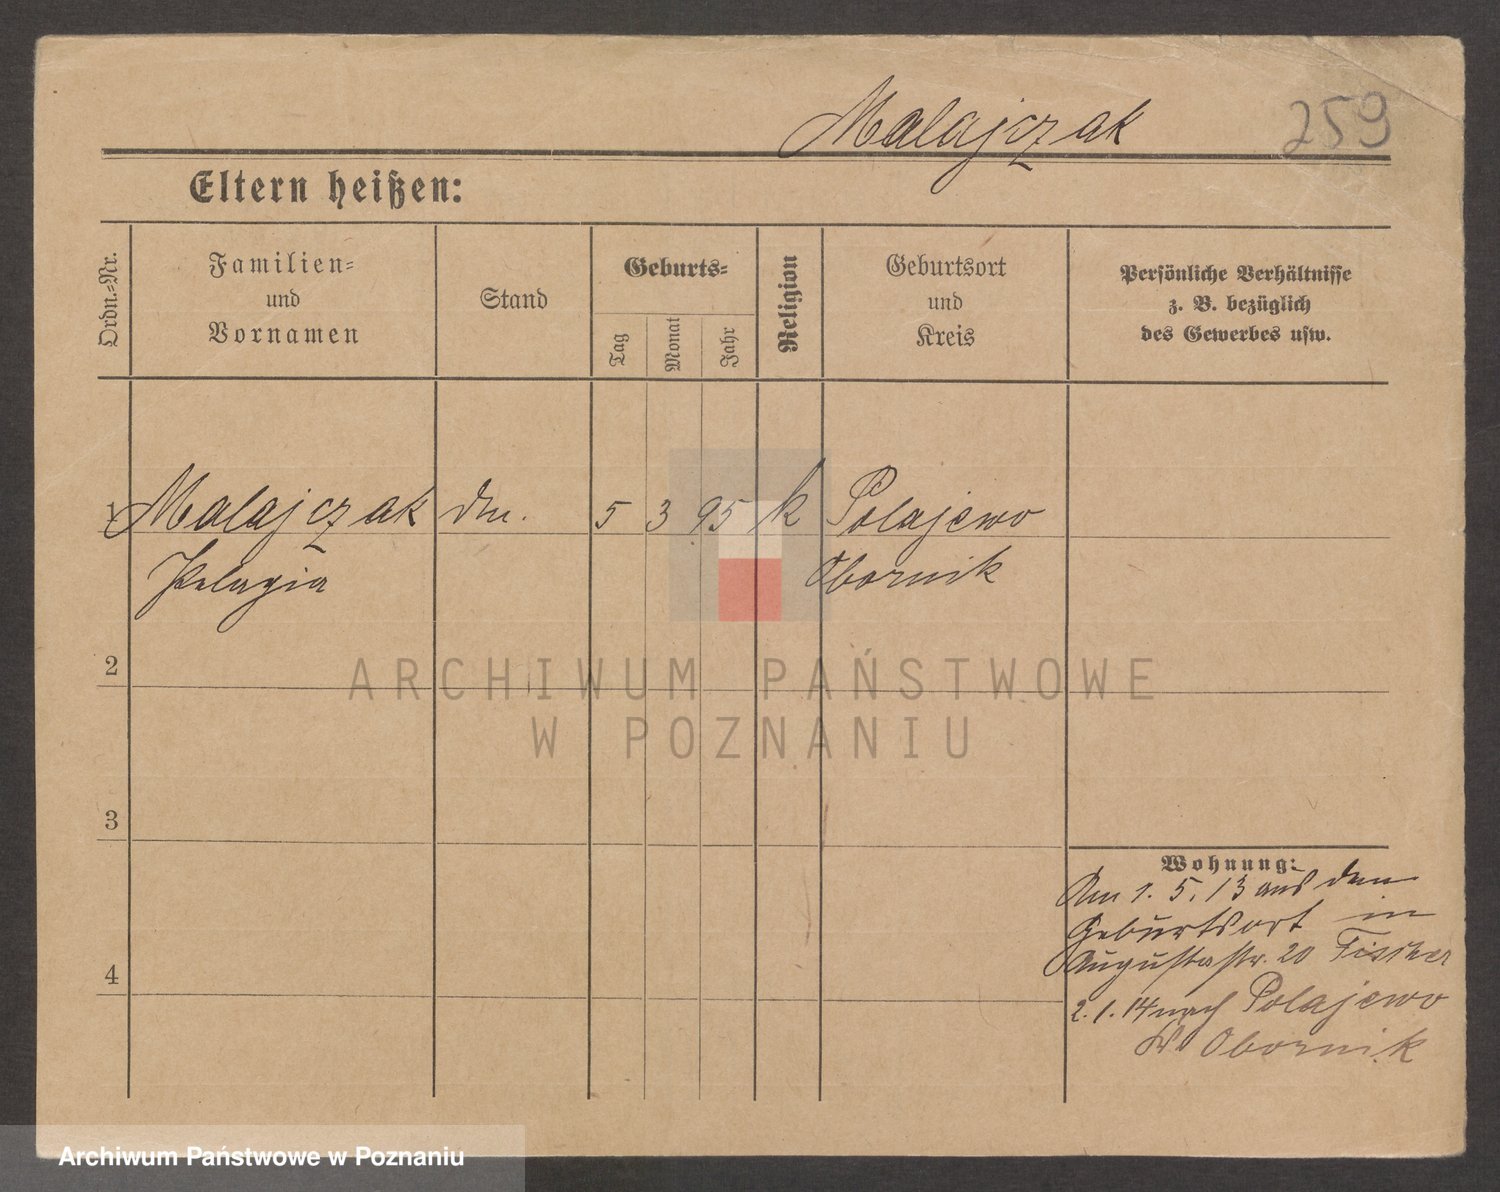 Malajczak 259
Eltern heißen:
Ordn.-Nr.
Familien-
und
Vornamen
Stand
Geburts-
Tag
Monat
Jahr
Religion
Geburtsort
und
Kreis
Persönliche Verhältnisse
z. B. bezüglich
des Gewerbes usw.
1 Malajczak 5 3 95 k Polajewo
Pelagia Obornik
2
3
4
Wohnung:
Am 1. 5. 13 aus dem
Geburtsort in
Augustastr. 20 Fischer
2. 1. 14 nach Polajewo
Obornik
ARCHIWUM PAŃSTWOWE
W POZNANIU
Archiwum Państwowe w Poznaniu